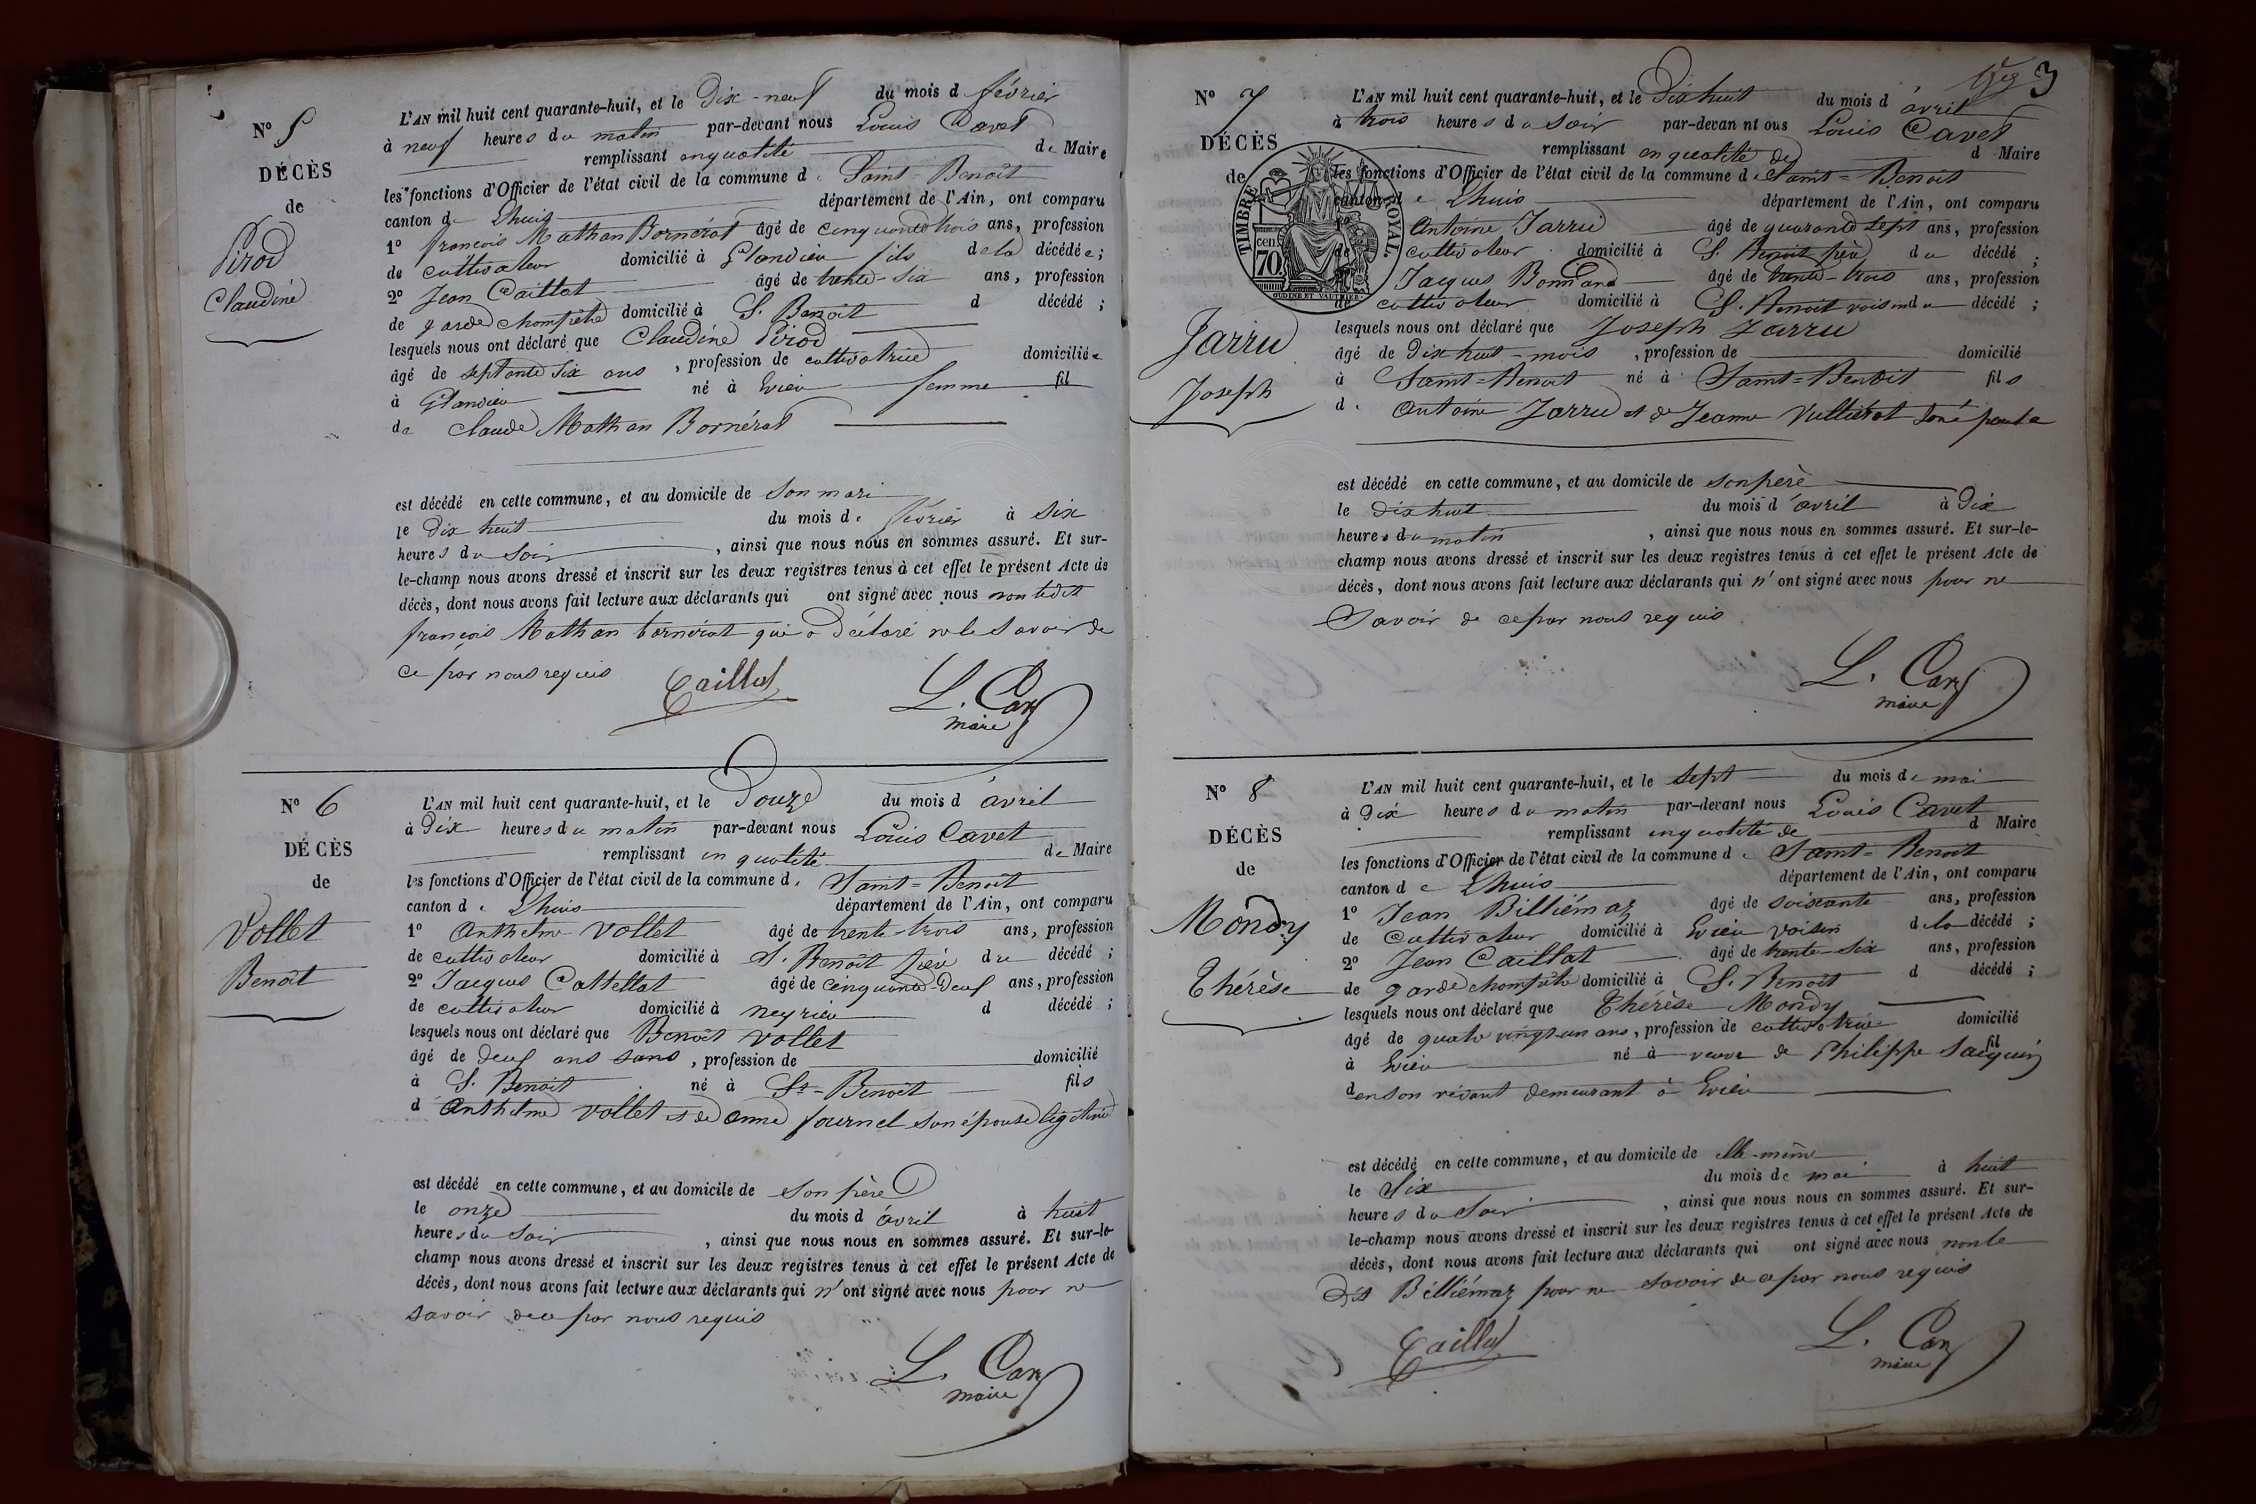 N° 5
DÉCÈS
de
Pirod
Claudine
L'AN mil huit cent quarante-huit, et le Dix-neuf du mois d février
à neuf heures du matin par-devant nous Louis Cavet
remplissant en qualité de Maire
les fonctions d'Officier de l'état civil de la commune de Saint-Benoît
canton de Lhuis département de l'Ain, ont comparu
1° françois Mathan Bornérat âgé de cinquante trois ans, profession
de cultivateur domicilié à Glandieu fils de la décédée;
2° Jean Caillat âgé de trente-six ans, profession
de garde champêtre domicilié à S. Benoît d décédé ;
lesquels nous ont déclaré que Claudine Pirod
âgé de septante six ans , profession de cultivatrice domiciliée
à Glandieu né à Evieu femme fil
de Claude Mathan Bornérat
est décédé en cette commune, et au domicile de son mari
le Dix huit du mois de février à six
heures du soir , ainsi que nous nous en sommes assuré. Et sur-
le-champ nous avons dressé et inscrit sur les deux registres tenus à cet effet le présent Acte de
décès, dont nous avons fait lecture aux déclarants qui ont signé avec nous non ledit
françois Mathan bornérat qui a déclaré ne le savoir de
ce par nous requis
Caillat
L. Cavet
maire
N° 6
DÉCÈS
de
Vollet
Benoît
L'AN mil huit cent quarante-huit, et le Douze du mois d'avril
à Dix heures du matin par-devant nous Louis Cavet
remplissant en qualité de Maire
les fonctions d'Officier de l'état civil de la commune de Saint-Benoît
canton de Lhuis département de l'Ain, ont comparu
1° Anthelme Vollet âgé de trente-trois ans, profession
de cultivateur domicilié à S. Benoît père du décédé ;
2° Jacques Cattellat âgé de cinquante-Deux ans, profession
de cultivateur domicilié à neyrieu d décédé ;
lesquels nous ont déclaré que Benoît Vollet
âgé de deux ans sans , profession de domicilié
à S. Benoît né à St-Benoît fils
d'Anthelme Vollet et de anne fournel son épouse légitime
est décédé en cette commune, et au domicile de son père
le onze du mois d'avril à huit
heures du soir , ainsi que nous nous en sommes assuré. Et sur-le-
champ nous avons dressé et inscrit sur les deux registres tenus à cet effet le présent Acte de
décès, dont nous avons fait lecture aux déclarants qui n'ont signé avec nous pour ne
savoir de ce par nous requis
L. Cavet
maire
3
N° 7
DÉCÈS
de
Jarru
Joseph
TIMBRE ROYAL.
70 cen
OUDINÉ ET VAUTHIER
L'AN mil huit cent quarante-huit, et le Dix huit du mois d'avril
à trois heures du soir par-devan nt ous Louis Cavet
remplissant en qualité de d Maire
les fonctions d'Officier de l'état civil de la commune de Saint-Benoît
canton de Lhuis département de l'Ain, ont comparu
Antoine Jarru âgé de quarante sept ans, profession
de cultivateur domicilié à S. Benoît père du décédé ;
Jacques Bonnard âgé de trente-trois ans, profession
de cultivateur domicilié à S. Benoît voisin du décédé ;
lesquels nous ont déclaré que Joseph Jarru
âgé de Dix huit-mois , profession de domicilié
à Saint-Benoit né à Saint-Benoit fils
d'Antoine Jarru et de Jeanne Vulliérat
est décédé en cette commune, et au domicile de son père
le dix huit du mois d'avril à Dix
heures du matin , ainsi que nous nous en sommes assuré. Et sur-le-
champ nous avons dressé et inscrit sur les deux registres tenus à cet effet le présent Acte de
décès, dont nous avons fait lecture aux déclarants qui n'ont signé avec nous pour ne
savoir de ce par nous requis
L. Cavet
maire
N° 8
DÉCÈS
de
Mondy
Thérèse
L'AN mil huit cent quarante-huit, et le sept du mois de mai
à Dix heures du matin par-devant nous Louis Cavet
remplissant en qualité de d Maire
les fonctions d'Officier de l'état civil de la commune de Saint-Benoît
canton de Lhuis département de l'Ain, ont comparu
1° Jean Billiémaz âgé de soixante ans, profession
de cultivateur domicilié à Evieu voisin de la décédé ;
2° Jean Caillat âgé de trente-six ans, profession
de garde champêtre domicilié à S. Benoît d décédé ;
lesquels nous ont déclaré que Thérèse Mondy
âgé de quatre vingt un ans, profession de cultivatrice domicilié
à Evieu né à veuve de Philippe Jacquin fil
d en son vivant demeurant à Evieu
est décédé en cette commune, et au domicile de elle-même
le Six du mois de mai à huit
heures du soir , ainsi que nous nous en sommes assuré. Et sur-
le-champ nous avons dressé et inscrit sur les deux registres tenus à cet effet le présent Acte de
décès, dont nous avons fait lecture aux déclarants qui ont signé avec nous non le
dit Billiémaz pour ne savoir de ce par nous requis
Caillat
L. Cavet
maire